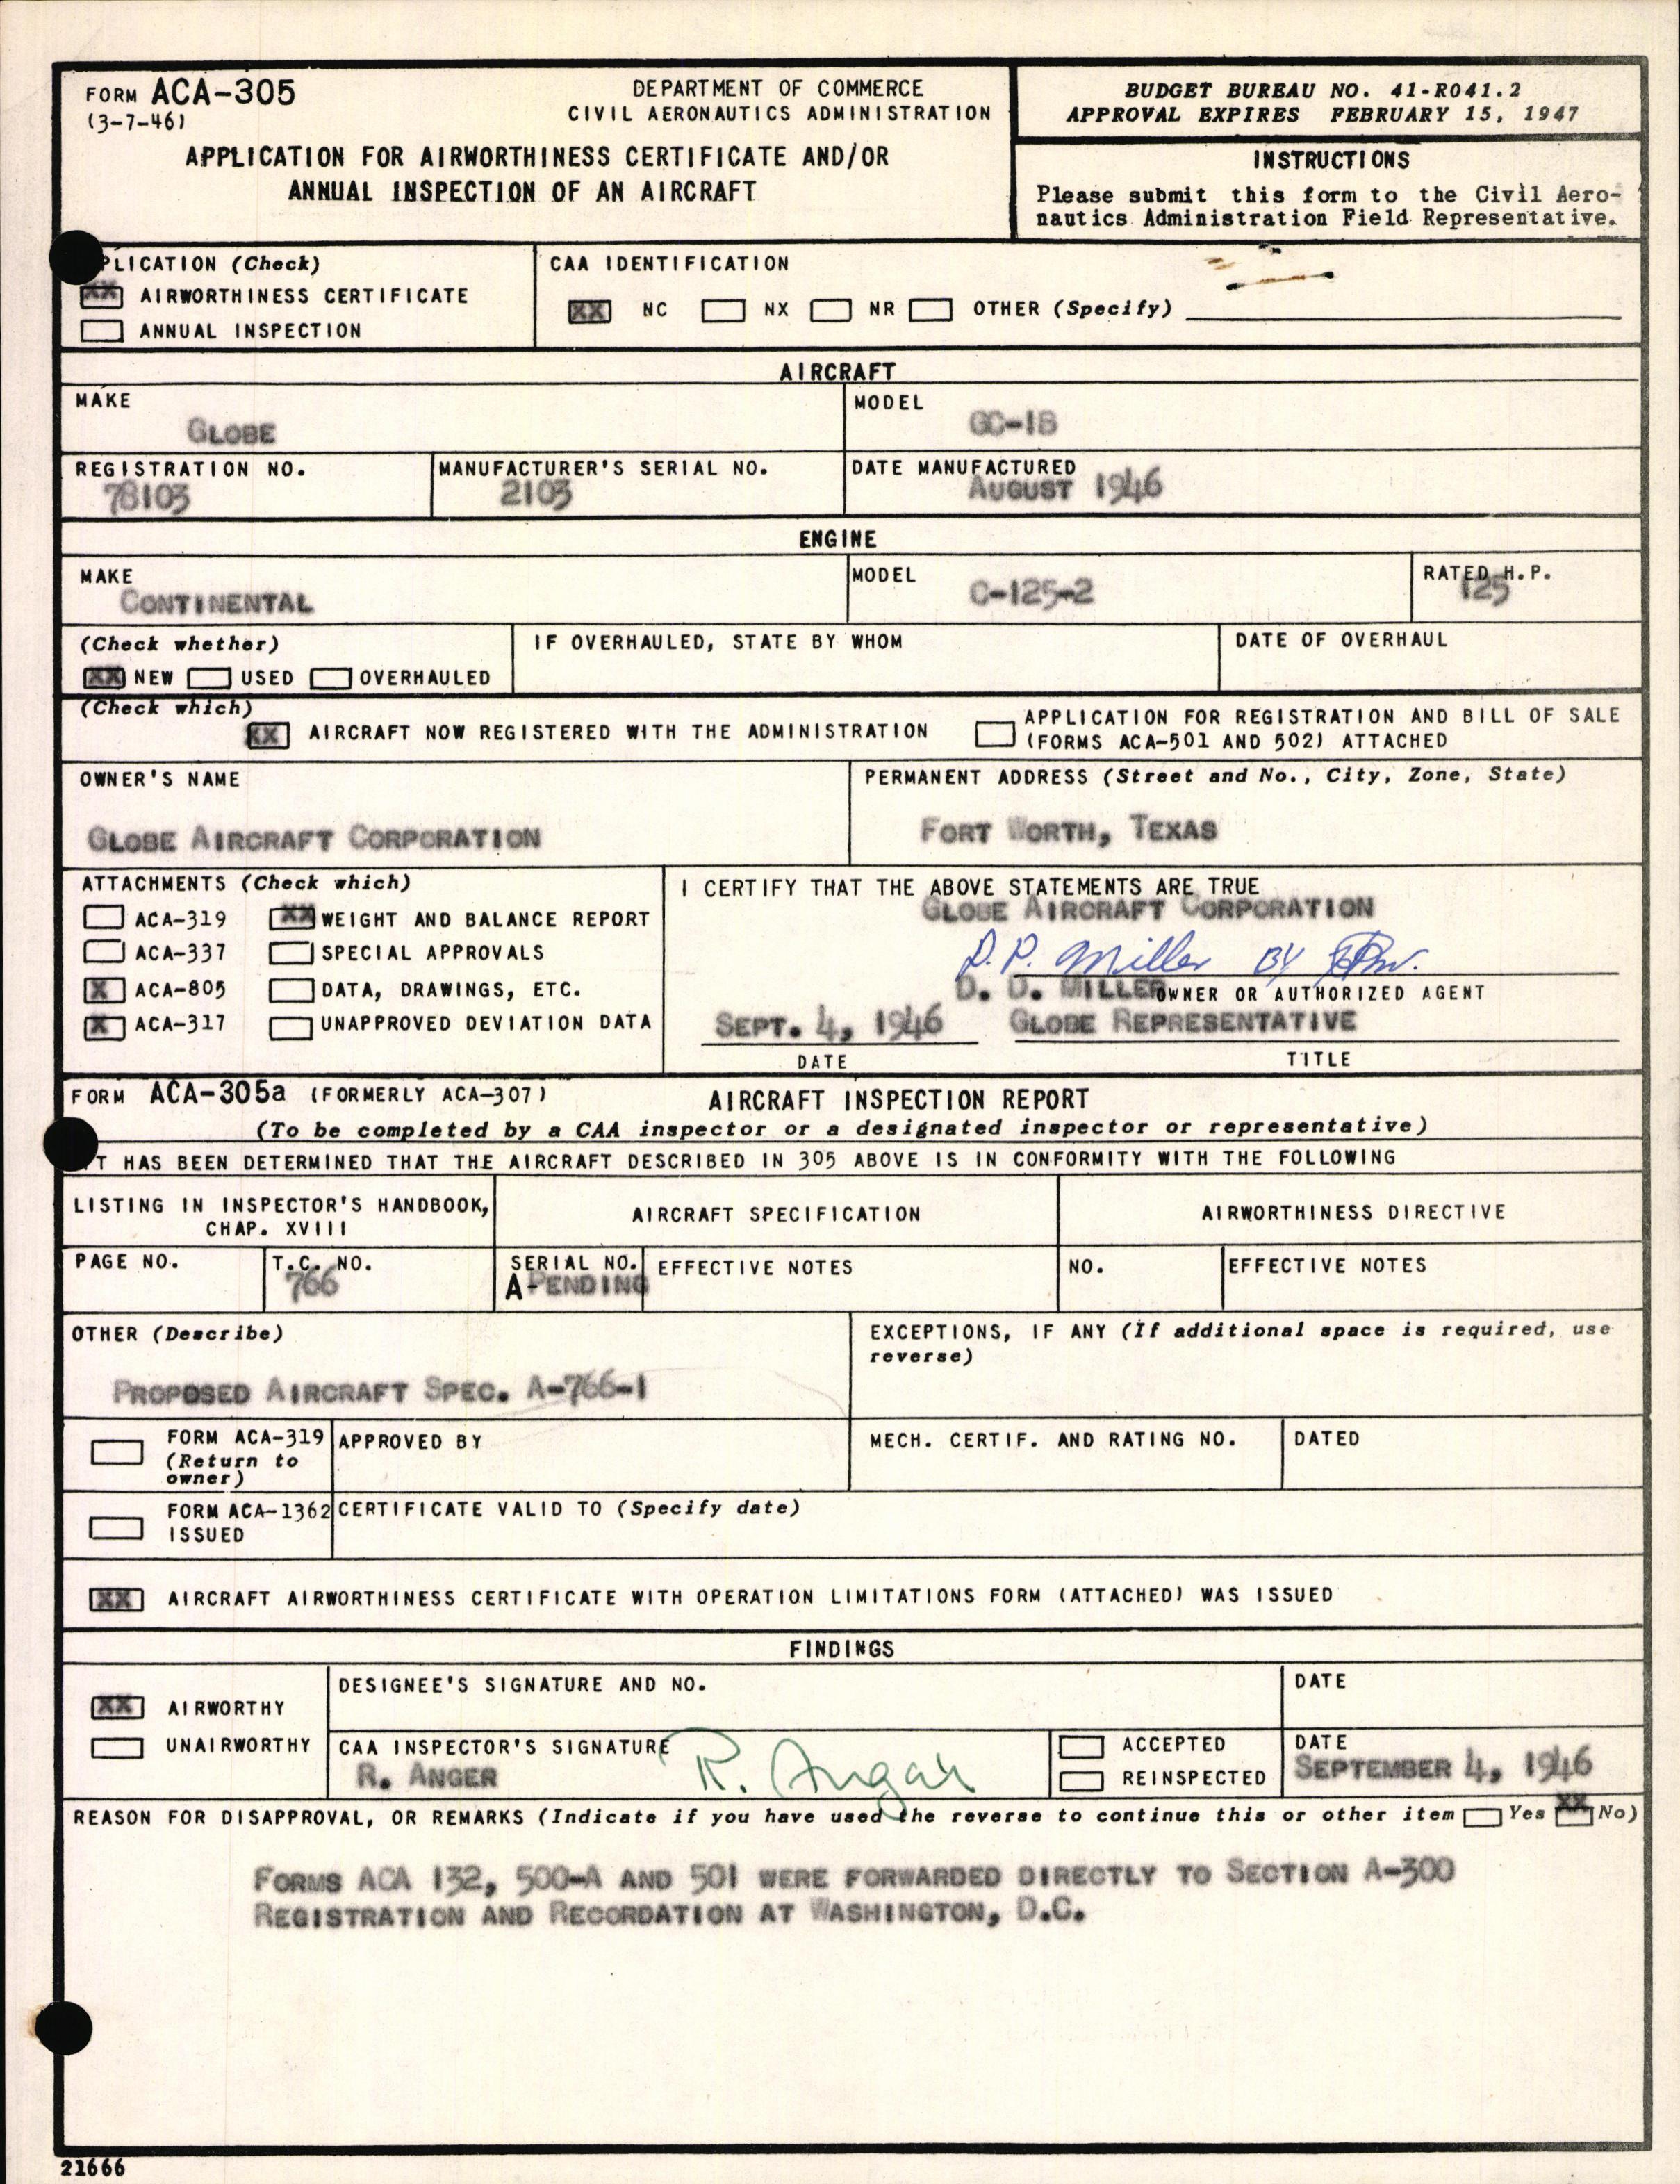 FORM ACA-305
(3-7-46)
DEPARTMENT OF COMMERCE
CIVIL AERONAUTICS ADMINISTRATION
APPLICATION FOR AIRWORTHINESS CERTIFICATE AND/OR
ANNUAL INSPECTION OF AN AIRCRAFT
BUDGET BUREAU NO. 41-R041.2
APPROVAL EXPIRES FEBRUARY 15, 1947
INSTRUCTIONS
Please submit this form to the Civil Aero-
nautics Administration Field Representative.
PLICATION (Check)
XX AIRWORTHINESS CERTIFICATE
ANNUAL INSPECTION
CAA IDENTIFICATION
XX NC NX NR OTHER (Specify)
AIRCRAFT
MAKE
GLOBE
MODEL
GC-1B
REGISTRATION NO.
78103
MANUFACTURER'S SERIAL NO.
2103
DATE MANUFACTURED
AUGUST 1946
ENGINE
MAKE
CONTINENTAL
MODEL
C-125-2
RATED H.P.
125
(Check whether)
XX NEW USED OVERHAULED
IF OVERHAULED, STATE BY WHOM
DATE OF OVERHAUL
(Check which)
XX AIRCRAFT NOW REGISTERED WITH THE ADMINISTRATION
APPLICATION FOR REGISTRATION AND BILL OF SALE
(FORMS ACA-501 AND 502) ATTACHED
OWNER'S NAME
GLOBE AIRCRAFT CORPORATION
PERMANENT ADDRESS (Street and No., City, Zone, State)
FORT WORTH, TEXAS
ATTACHMENTS (Check which)
ACA-319 XX WEIGHT AND BALANCE REPORT
ACA-337 SPECIAL APPROVALS
X ACA-805 DATA, DRAWINGS, ETC.
X ACA-317 UNAPPROVED DEVIATION DATA
I CERTIFY THAT THE ABOVE STATEMENTS ARE TRUE
GLOBE AIRCRAFT CORPORATION
D.D. Miller BY
D. D. MILLER OWNER OR AUTHORIZED AGENT
SEPT. 4, 1946 GLOBE REPRESENTATIVE
DATE TITLE
FORM ACA-305a (FORMERLY ACA-307) AIRCRAFT INSPECTION REPORT
(To be completed by a CAA inspector or a designated inspector or representative)
IT HAS BEEN DETERMINED THAT THE AIRCRAFT DESCRIBED IN 305 ABOVE IS IN CONFORMITY WITH THE FOLLOWING
LISTING IN INSPECTOR'S HANDBOOK,
CHAP. XVIII
AIRCRAFT SPECIFICATION
AIRWORTHINESS DIRECTIVE
PAGE NO.
T.C. NO.
766
SERIAL NO.
A-PENDING
EFFECTIVE NOTES
NO.
EFFECTIVE NOTES
OTHER (Describe)
PROPOSED AIRCRAFT SPEC. A-766-1
EXCEPTIONS, IF ANY (If additional space is required, use
reverse)
FORM ACA-319
(Return to
owner)
APPROVED BY
MECH. CERTIF. AND RATING NO.
DATED
FORM ACA-1362
ISSUED
CERTIFICATE VALID TO (Specify date)
XX AIRCRAFT AIRWORTHINESS CERTIFICATE WITH OPERATION LIMITATIONS FORM (ATTACHED) WAS ISSUED
FINDINGS
XX AIRWORTHY
UNAIRWORTHY
DESIGNEE'S SIGNATURE AND NO.
DATE
CAA INSPECTOR'S SIGNATURE
R. ANGER R. Anger
ACCEPTED
REINSPECTED
DATE
SEPTEMBER 4, 1946
REASON FOR DISAPPROVAL, OR REMARKS (Indicate if you have used the reverse to continue this or other item Yes XX No)
FORMS ACA 132, 500-A AND 501 WERE FORWARDED DIRECTLY TO SECTION A-300
REGISTRATION AND RECORDATION AT WASHINGTON, D.C.
21666